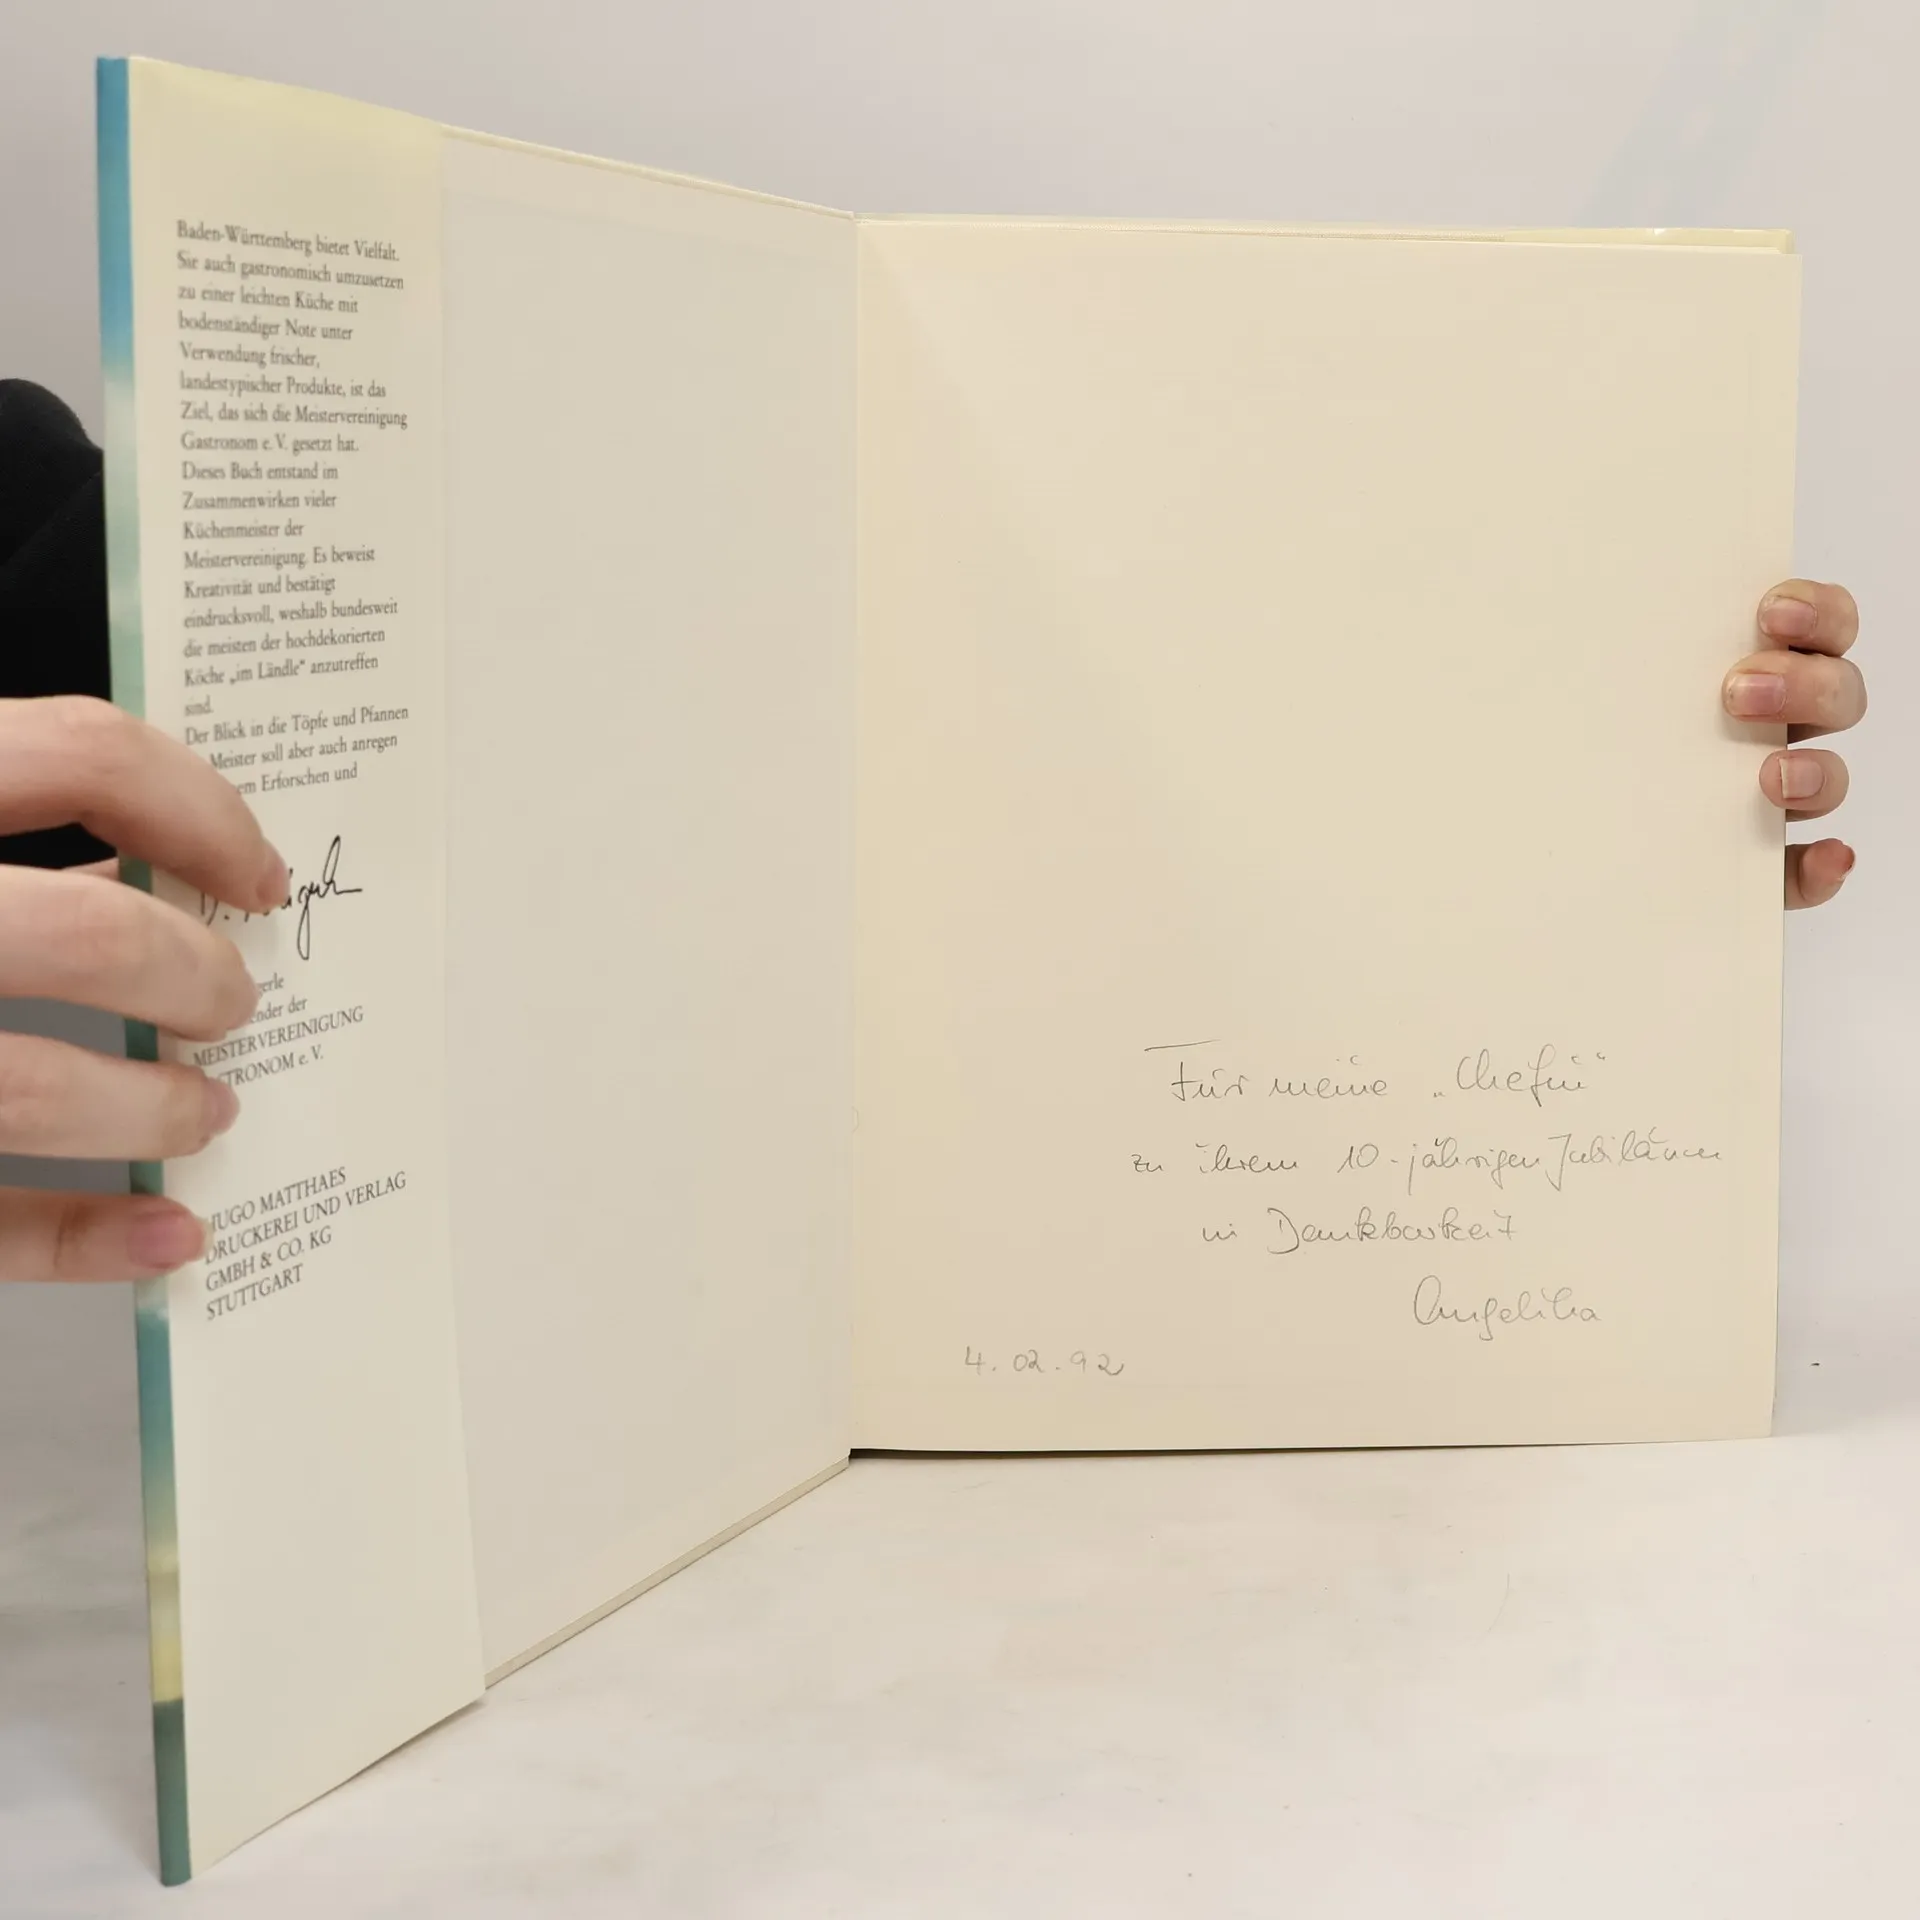 Baden-Württemberg bietet Vielfalt.
Sie auch gastronomisch umzusetzen
zu einer leichten Küche mit
bodenständiger Note unter
Verwendung frischer,
landestypischer Produkte, ist das
Ziel, das sich die Meistervereinigung
Gastronom e. V. gesetzt hat.
Dieses Buch entstand im
Zusammenwirken vieler
Küchenmeister der
Meistervereinigung. Es beweist
Kreativität und bestätigt
eindrucksvoll, weshalb bundesweit
die meisten der hochdekorierten
Köche „im Ländle“ anzutreffen
sind.
Der Blick in die Töpfe und Pfannen
Meister soll aber auch anregen
em Erforschen und
gerle
ender der
MEISTERVEREINIGUNG
STRONOM e. V.
HUGO MATTHAES
DRUCKEREI UND VERLAG
GMBH & CO. KG
STUTTGART
Für meine „Chefin“
zu ihrem 10-jährigen Jubiläum
in Dankbarkeit
Angelika
4.02.92